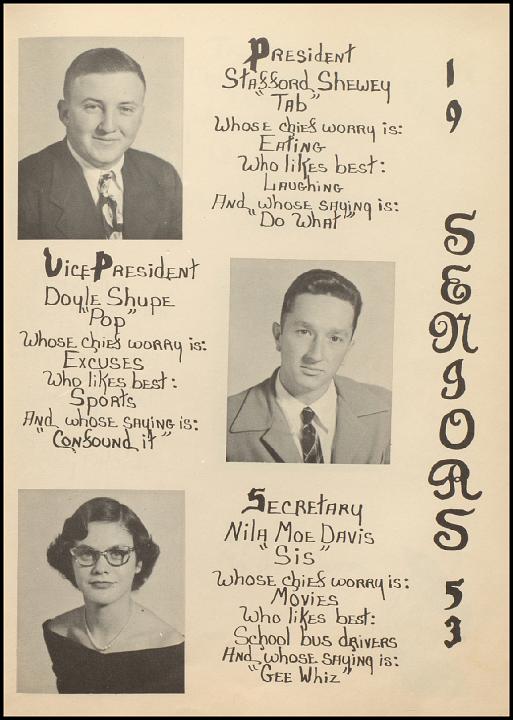 President
Stafford Shewey
"Tab"
Whose chief worry is:
Eating
Who likes best:
Laughing
And whose saying is:
"Do What"
Vice President
Doyle Shupe
"Pop"
Whose chief worry is:
Excuses
Who likes best:
Sports
And whose saying is:
"Confound it"
Secretary
Nila Moe Davis
"Sis"
Whose chief worry is:
Movies
Who likes best:
School bus drivers
And whose saying is:
"Gee Whiz"
19
SENIORS
53